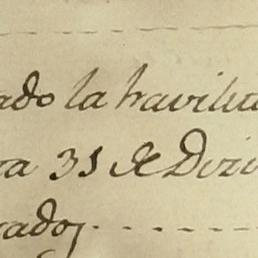 ado la havilita
ra 31 de Dizi
cado,